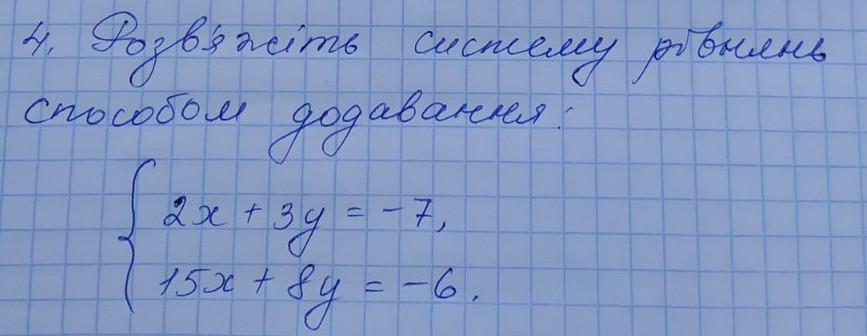 4. Розв'яжіть систему рівнянь
способом додавання:
2x + 3y = -7,
15x + 8y = -6.